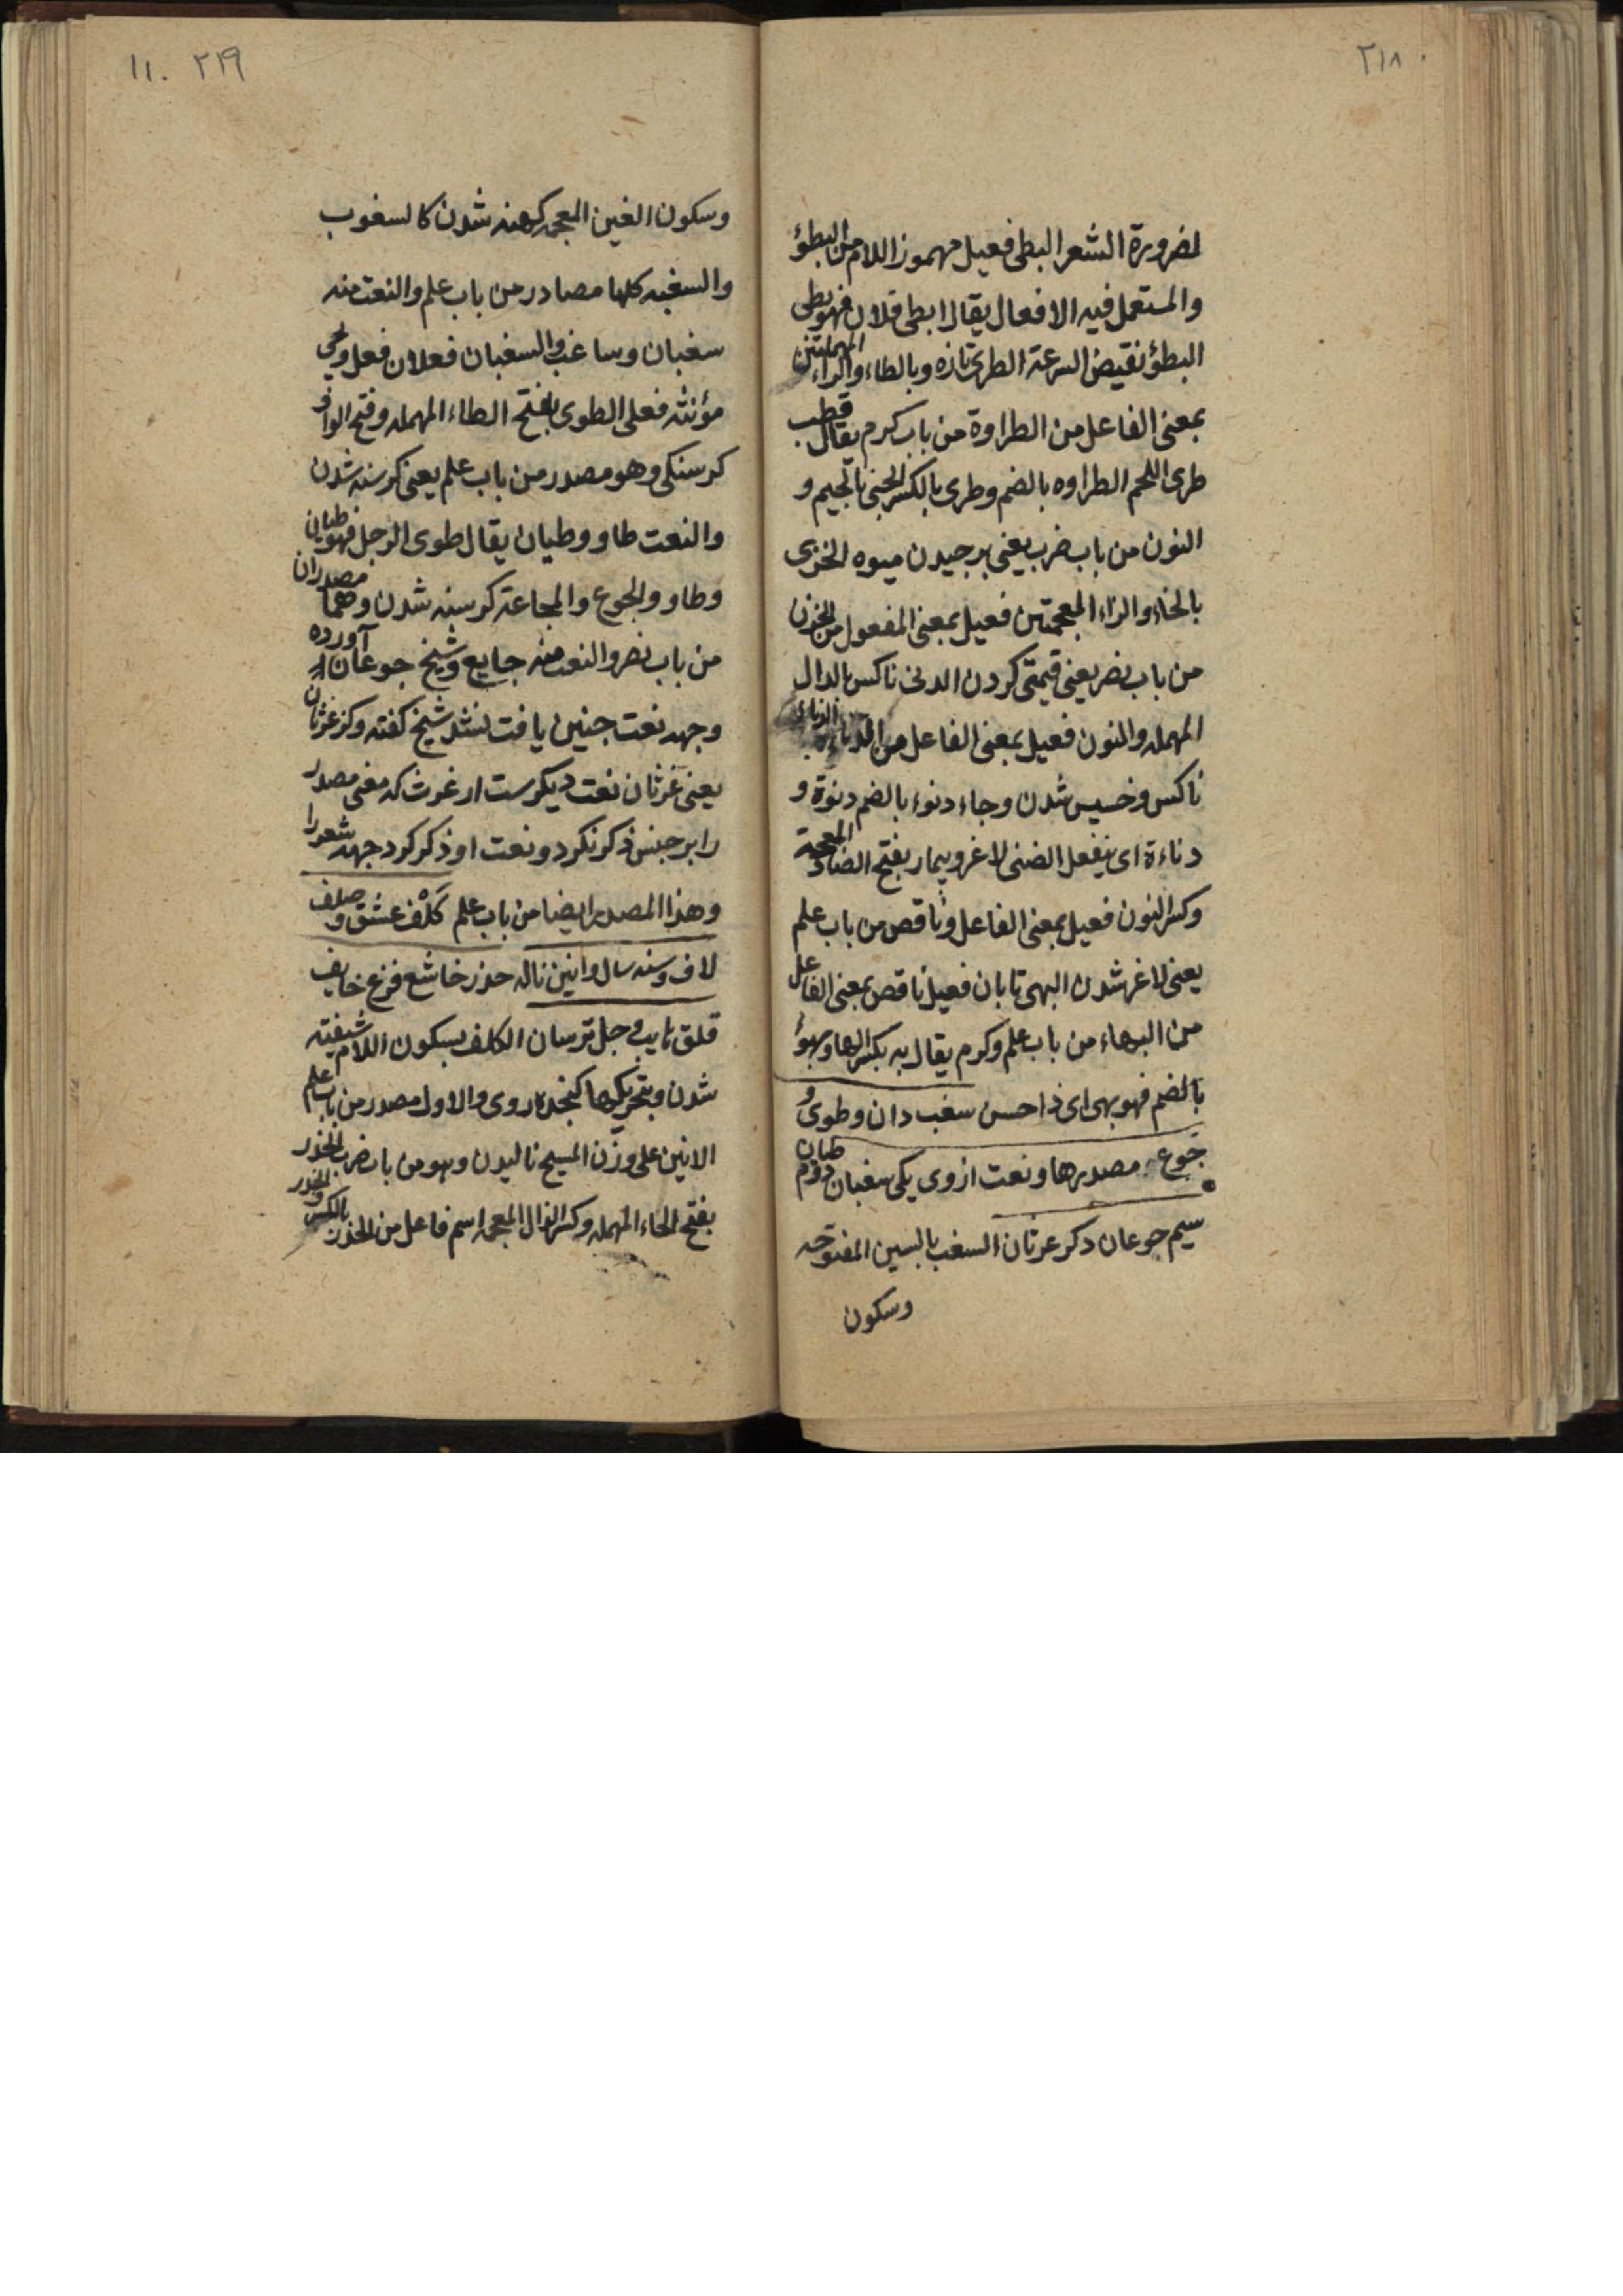 ٢١٨
لضرورة الشعر البطی فعیل مهموز اللام من البطؤ
والمستعمل فیه الافعال یقال ابطی فلان فهو بطی
البطؤ نقیض السرعة الطری تازه وبالطاء والراء المهملتین
بمعنی الفاعل من الطراوة من باب کرم یقال قطب
طری اللحم الطراوه بالضم وطری بالکسر الجنی بالجیم و
النون من باب ضرب یعنی برجیدن میوه الخزی
بالخاء والزاء المعجمتین فعیل بمعنی المفعول من الخزن
من باب نصر یعنی قیمتی کردن الدنی ناکس الدال
المهمله والنون فعیل بمعنی الفاعل من
ناکس و خسیس شدن وجاء دنوء بالضم دنوة و
دناءة ای ینفعل الضنی لاغر وبیمار بفتح الضاد المعجمة
وکسر النون فعیل بمعنی الفاعل وناقص من باب علم
یعنی لاغر شدن البهی تابان فعیل ناقص بمعنی الفاعل
من البهاء من باب علم وکرم یقال به بکسر الهاء وبهؤ
بالضم فهو بهی ای ذا حسن سغب دان و طوی و
جوع مصدرها و نعت از وی یکی سغبان دوم طیان
سیم جوعان دکر عرثان السغب بالسین المفتوحه
وسکون
٢١٩ ١١٠
وسکون الغین المعجمه کرهنه شدن کالسغوب
والسغبه کلها مصادر من باب علم والنعت منه
سغبان وساغب والسغبان فعلان فعل ویجی
مؤنثه فعلی الطوی بفتح الطاء المهمله وفتح الواو
کرسنکی وهو مصدر من باب علم یعنی کرسنه شدن
والنعت طاو وطیان یقال طوی الرجل فهو طیان
وطاو والجوع والمجاعة کرسنه شدن وهما مصدران
من باب نصر والنعت منه جایع وشیخ جوعان آورده
وجهه نعت جنین یافت نشد شیخ کفته وکز غرثان
یعنی غرثان نعت دیکرست از غرث که معنی مصدر
را بر جنس ذکر نکرد و نعت او ذکر کرد جهة شعر را
وهذا المصدر ایضا من باب علم کلف عشق و صلف
لاف و سنه سال و انین ناله حذر خاشع فزع خایف
قلق تایب وجل ترسان الکلف بسکون اللام شیفته
شدن وبتحریکها کنجده روی والاول مصدر من باب علم
الانین علی وزن المسیح نالیدن وهو من باب ضرب الحذر
بفتح الحاء المهمله وکسر الذال المعجمه اسم فاعل من الحذر بالکسر والحذر